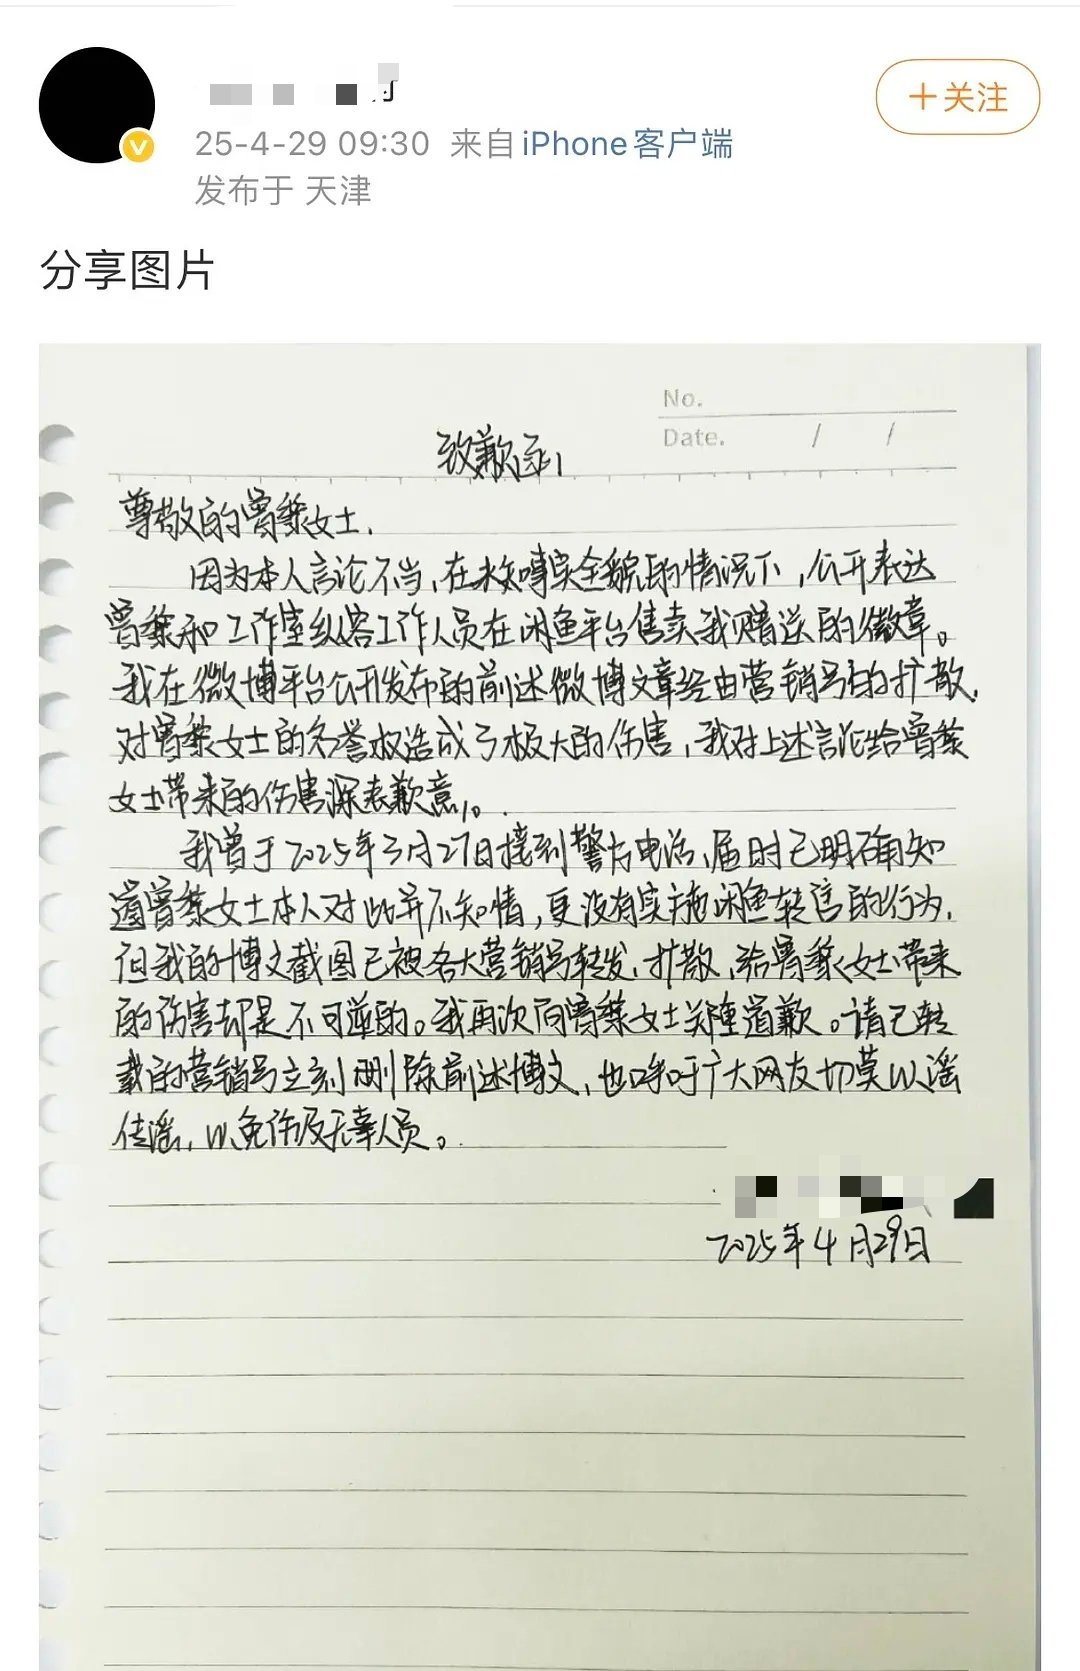 25-4-29 09:30 来自 iPhone客户端
+关注
发布于 天津
分享图片
No.
Date. / /
致歉函
尊敬的曾黎女士,
因为本人言论不当,在未知事实全貌的情况下,公开表达
曾黎和工作室纵容工作人员在闲鱼平台售卖我赠送的徽章。
我在微博平台公开发布的前述微博文章经由营销号的扩散,
对曾黎女士的名誉权造成了极大的伤害,我对上述言论给曾黎
女士带来的伤害深表歉意。
我曾于2025年3月27日接到警方电话,届时已明确知
道曾黎女士本人对此并不知情,更没有实施闲鱼转售的行为,
但我的博文截图已被各大营销号转发,扩散,给曾黎女士带来
的伤害却是不可逆的。我再次向曾黎女士郑重道歉。请已转
载的营销号立刻删除前述博文,也呼吁广大网友切莫以谣
传谣,以免伤及无辜人员。
2025年4月29日